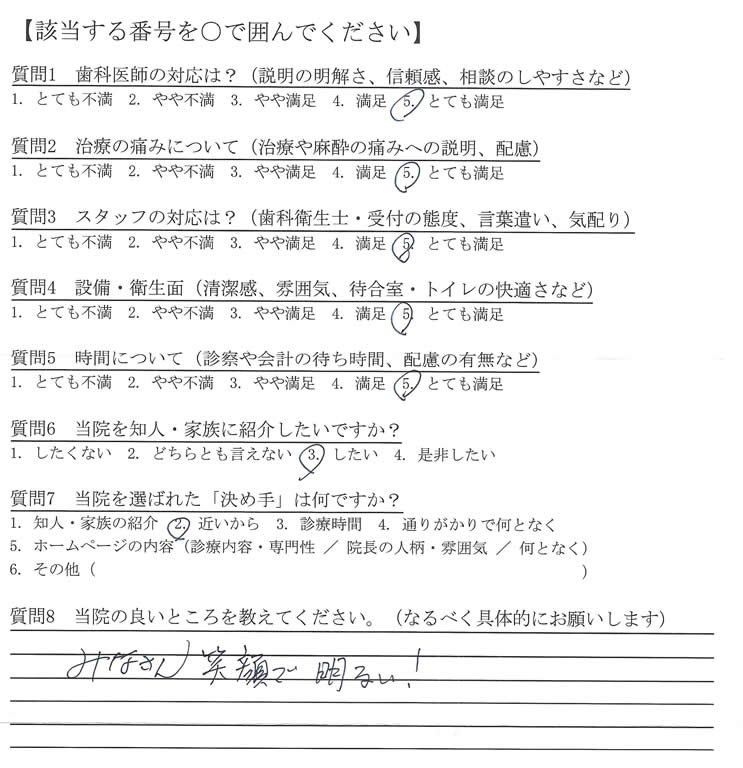 【該当する番号を〇で囲んでください】
質問1 歯科医師の対応は？（説明の明解さ、信頼感、相談のしやすさなど）
1. とても不満 2. やや不満 3. やや満足 4. 満足 5. とても満足
質問2 治療の痛みについて（治療や麻酔の痛みへの説明、配慮）
1. とても不満 2. やや不満 3. やや満足 4. 満足 5. とても満足
質問3 スタッフの対応は？（歯科衛生士・受付の態度、言葉遣い、気配り）
1. とても不満 2. やや不満 3. やや満足 4. 満足 5. とても満足
質問4 設備・衛生面（清潔感、雰囲気、待合室・トイレの快適さなど）
1. とても不満 2. やや不満 3. やや満足 4. 満足 5. とても満足
質問5 時間について（診察や会計の待ち時間、配慮の有無など）
1. とても不満 2. やや不満 3. やや満足 4. 満足 5. とても満足
質問6 当院を知人・家族に紹介したいですか？
1. したくない 2. どちらとも言えない 3. したい 4. 是非したい
質問7 当院を選ばれた「決め手」は何ですか？
1. 知人・家族の紹介 2. 近いから 3. 診療時間 4. 通りがかりで何となく
5. ホームページの内容（診療内容・専門性 ／ 院長の人柄・雰囲気 ／ 何となく）
6. その他（ ）
質問8 当院の良いところを教えてください。（なるべく具体的にお願いします）
みなさん笑顔で明るい！